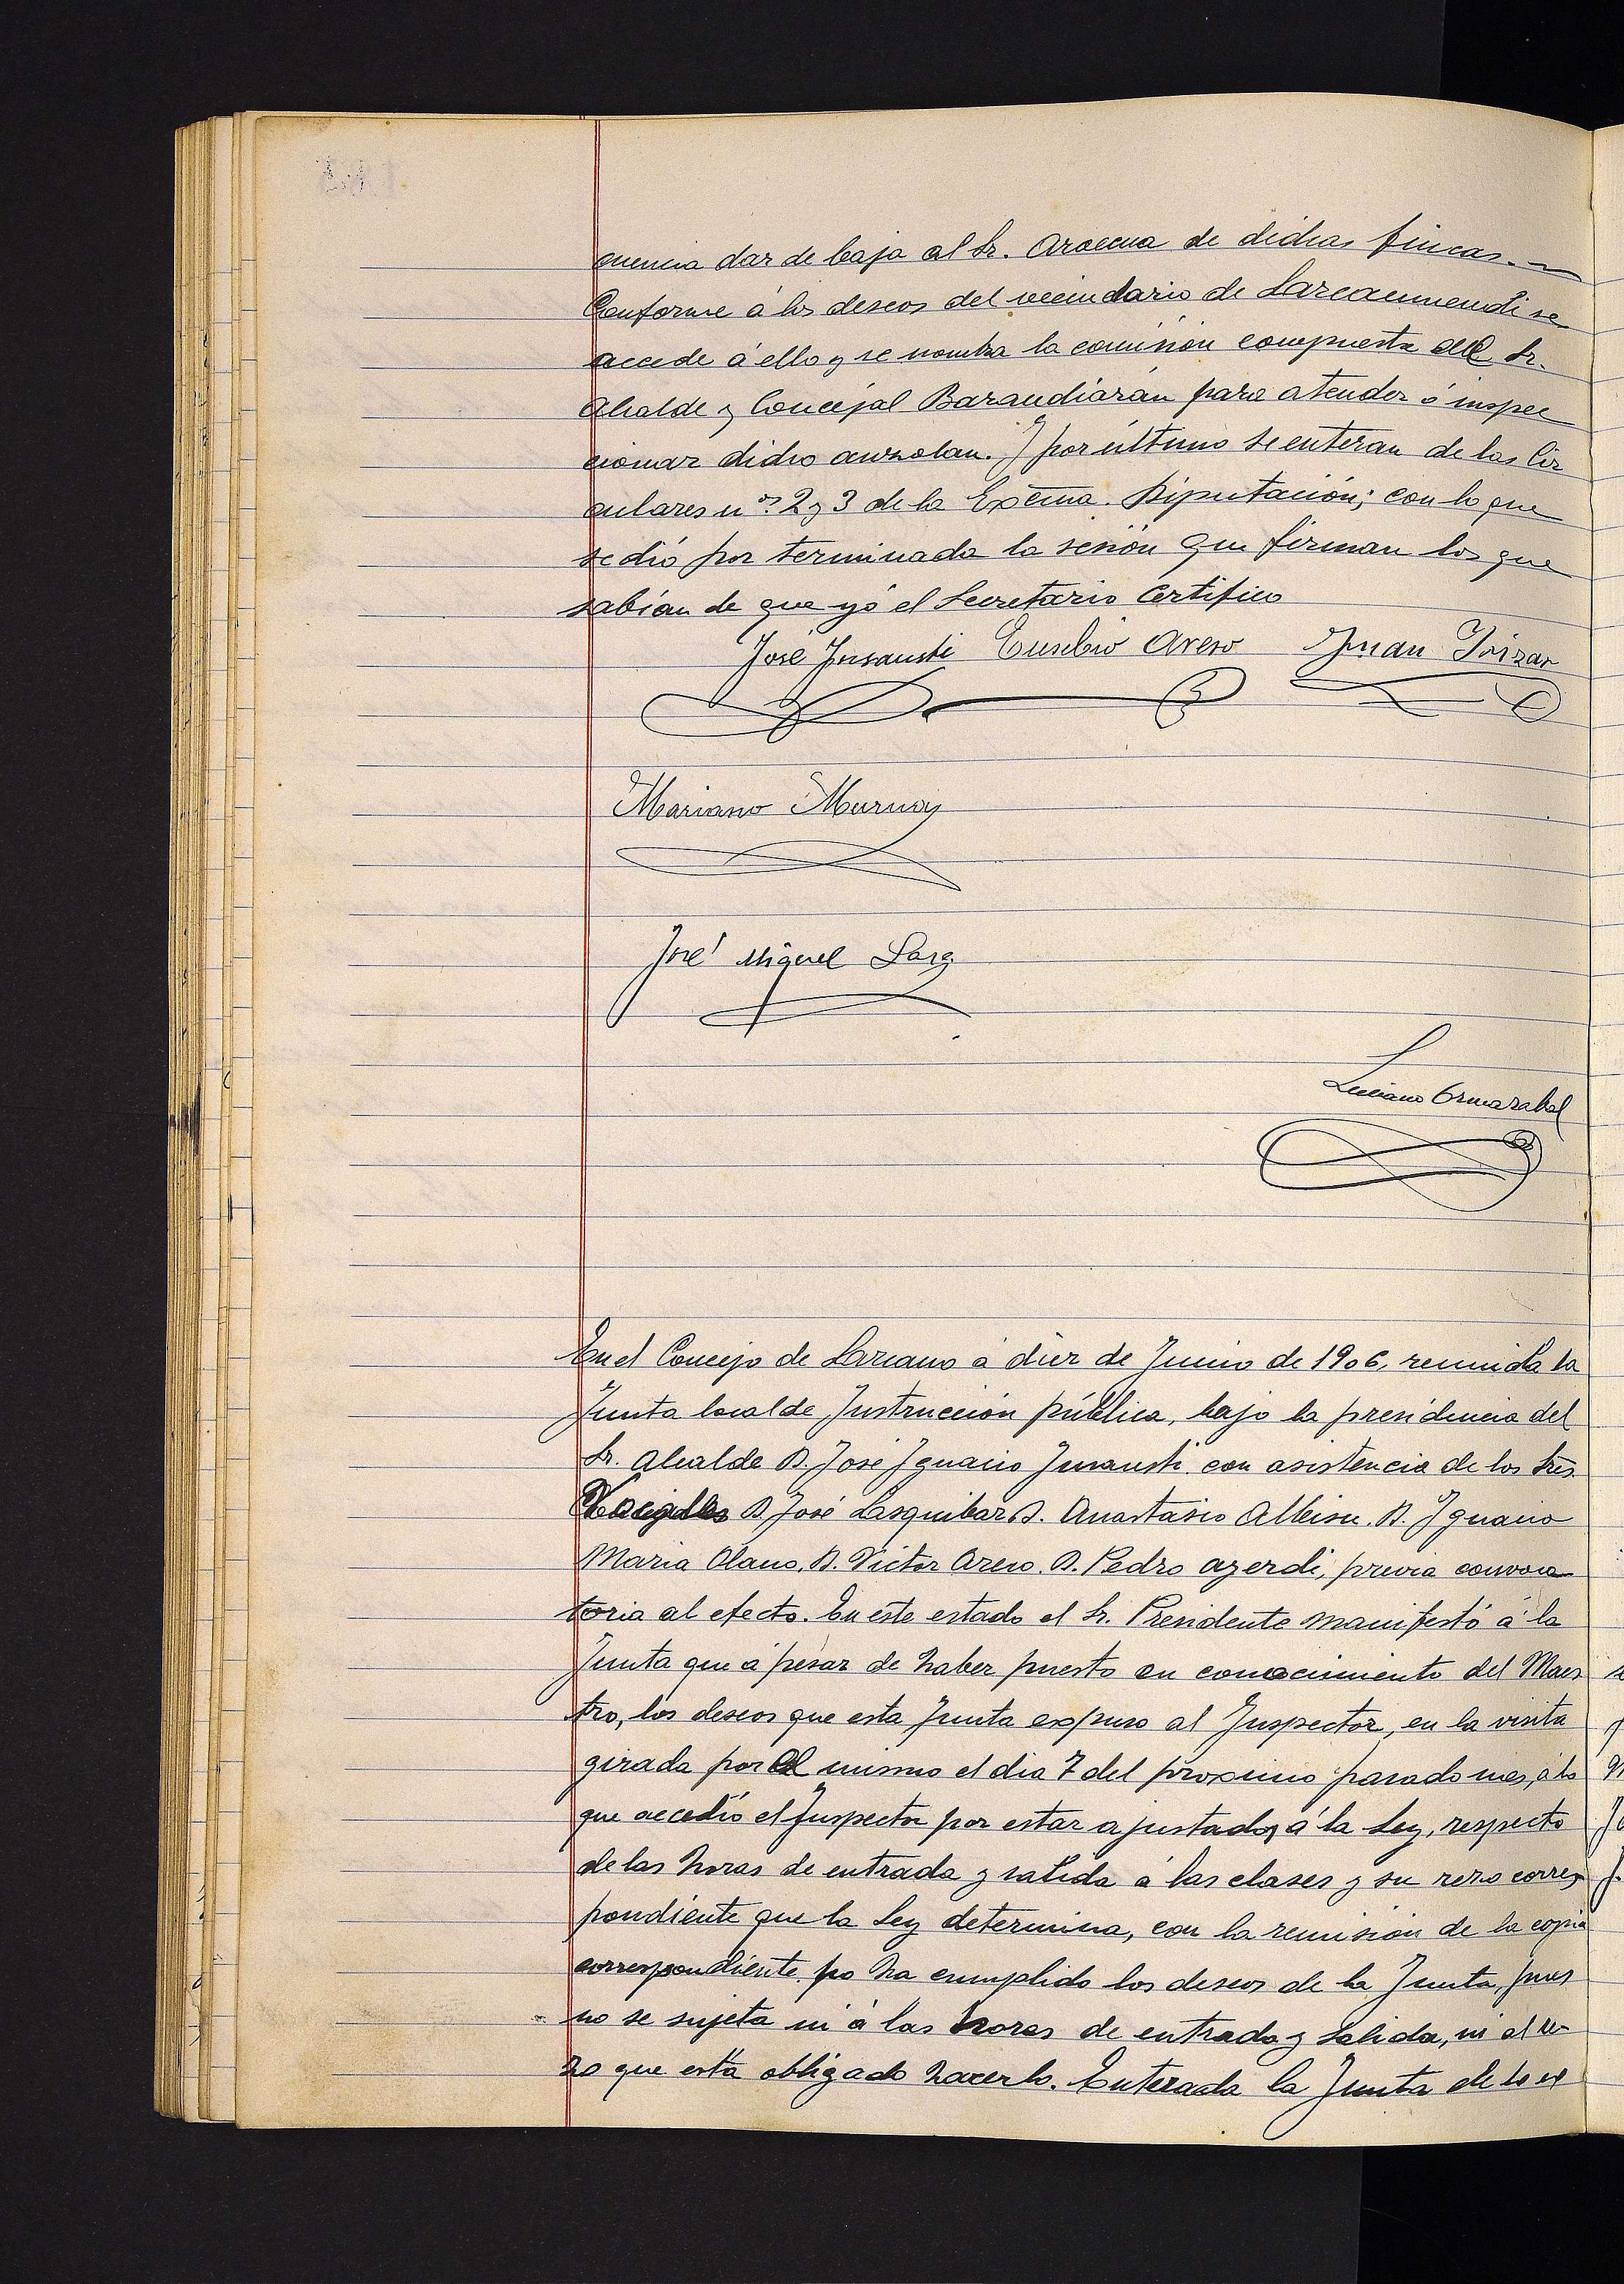 cuencia dar de baja al Sr. Aroccua de dichas fincas.
Conforme á los deseos del vecindario de Lazcaumendi se
accede á ello y se nombra la comision compuesta del Sr.
Alcalde y Concejal Barandiarán para atender ó inspec
cionar dicho auzolan. Y por último se enteran de las Cir
culares nos 2 y 3 de la Excma. Diputación; con lo que
se dió por terminada la sesión que firman los que
sabían de que yó el Secretario Certifico
José Insausti Eusebio Areso Juan Irizar
Mariano Murua
José Miguel Lasa
Luciano Ormazabal
En el Concejo de Lazcano á diez de Junio de 1906, reunida la
Junta local de Instrucción pública, bajo la presidencia del
Sr. Alcalde D. José Ignacio Insausti con asistencia de los Sres
D. José Lasquibar D. Anastasio Albisu. D. Ignacio
Maria Olano, D. Victor Areso. D. Pedro azerdi, previa convoca
toria al efecto. En este estado el Sr. Presidente manifestó á la
Junta que á pesar de haber puesto en conocimiento del Maes
tro, los deseos que esta Junta expuso al Inspector, en la visita
girada por el mismo el dia 7 del proximo pasado mes, á lo
que accedió el Inspector por estar ajustados á la Ley, respecto
de las horas de entrada y salida á las clases y su rezo corres
pondiente que la Ley determina, con la remisión de la copia
correspondiente no ha cumplido los deseos de la Junta, pues
no se sujeta ni á las horas de entrada y salida, ni al re-
zo que está obligado hacerlo. Enterada la Junta de lo ex